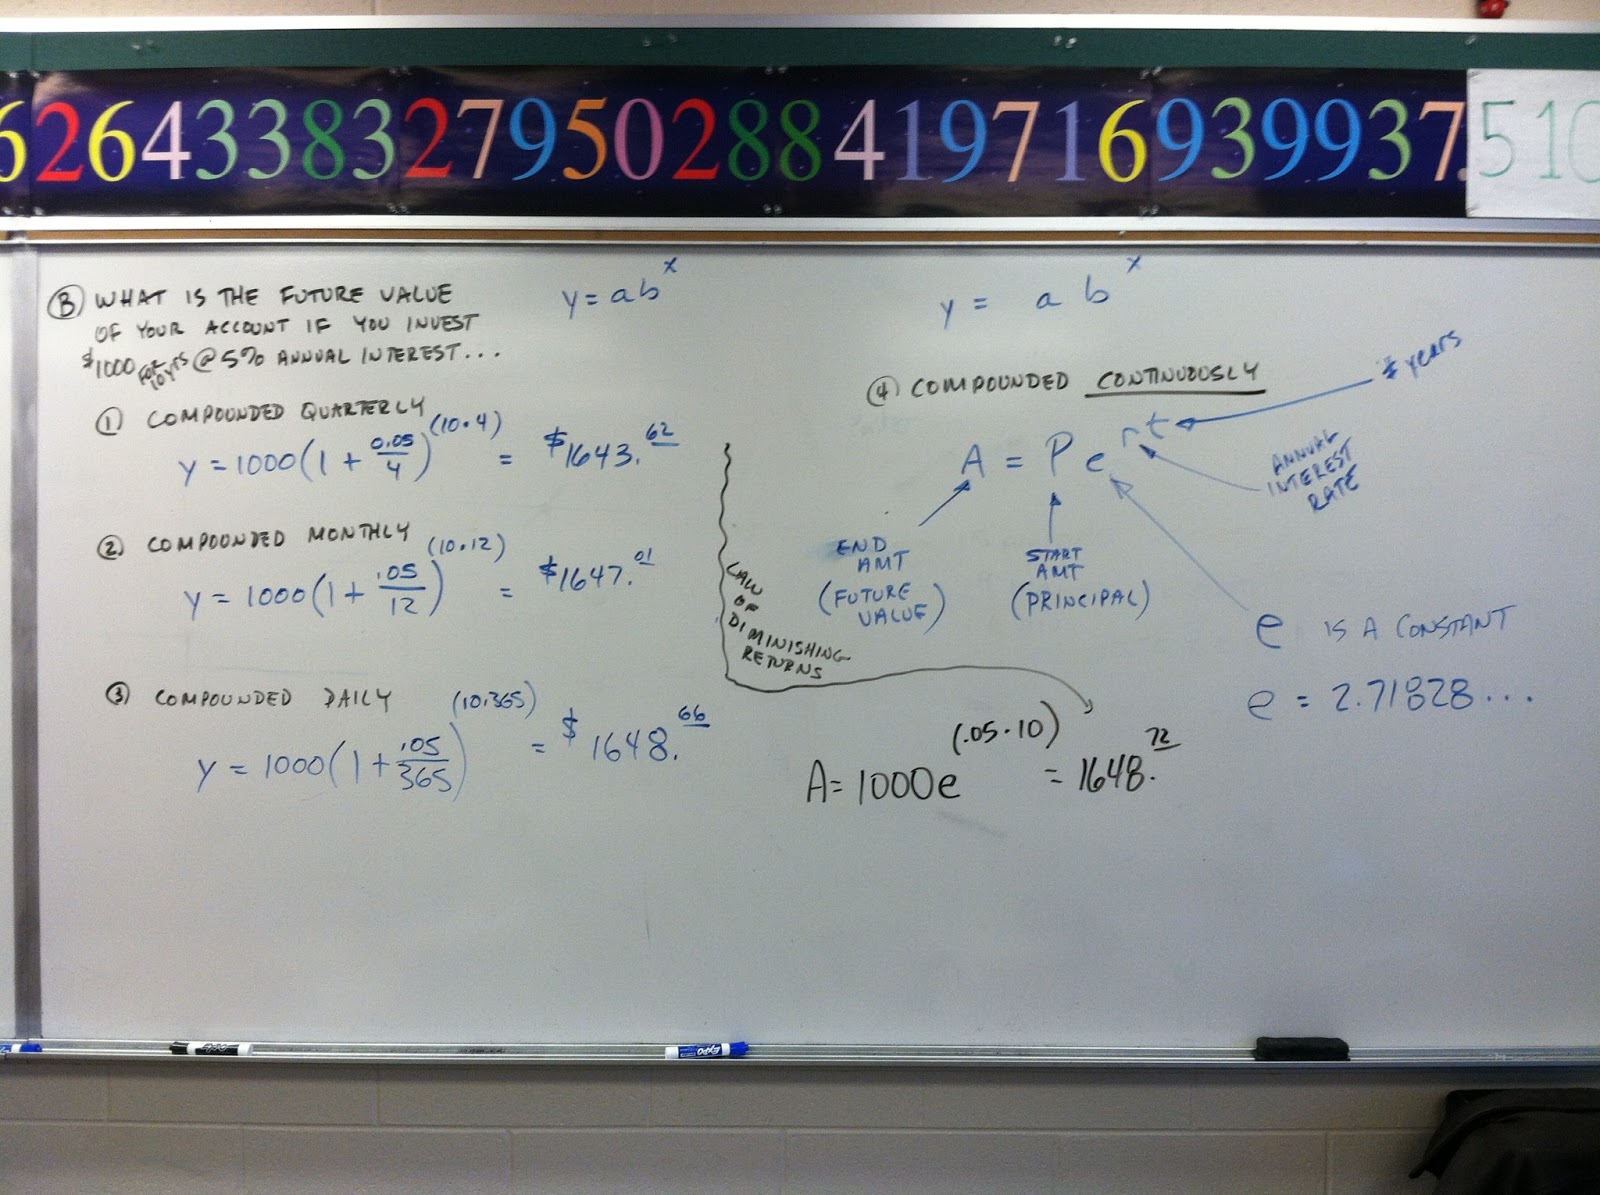 62643383279502884197169399937.510
B WHAT IS THE FUTURE VALUE
OF YOUR ACCOUNT IF YOU INVEST
$1000 FOR 10yrs @ 5% ANNUAL INTEREST...
y = ab^x
① COMPOUNDED QUARTERLY
y = 1000(1 + 0.05/4)^(10·4) = $1643.62
② COMPOUNDED MONTHLY
y = 1000(1 + .05/12)^(10·12) = $1647.01
③ COMPOUNDED DAILY
y = 1000(1 + .05/365)^(10·365) = $1648.66
LAW
OF
DIMINISHING
RETURNS
y = a b^x
④ COMPOUNDED CONTINUOUSLY
# years
A = Pe^rt
ANNUAL
INTEREST
RATE
END
AMT
(FUTURE
VALUE)
START
AMT
(PRINCIPAL)
e IS A CONSTANT
e = 2.71828...
A = 1000e^(.05·10) = 1648.72
EXPO
EXPO